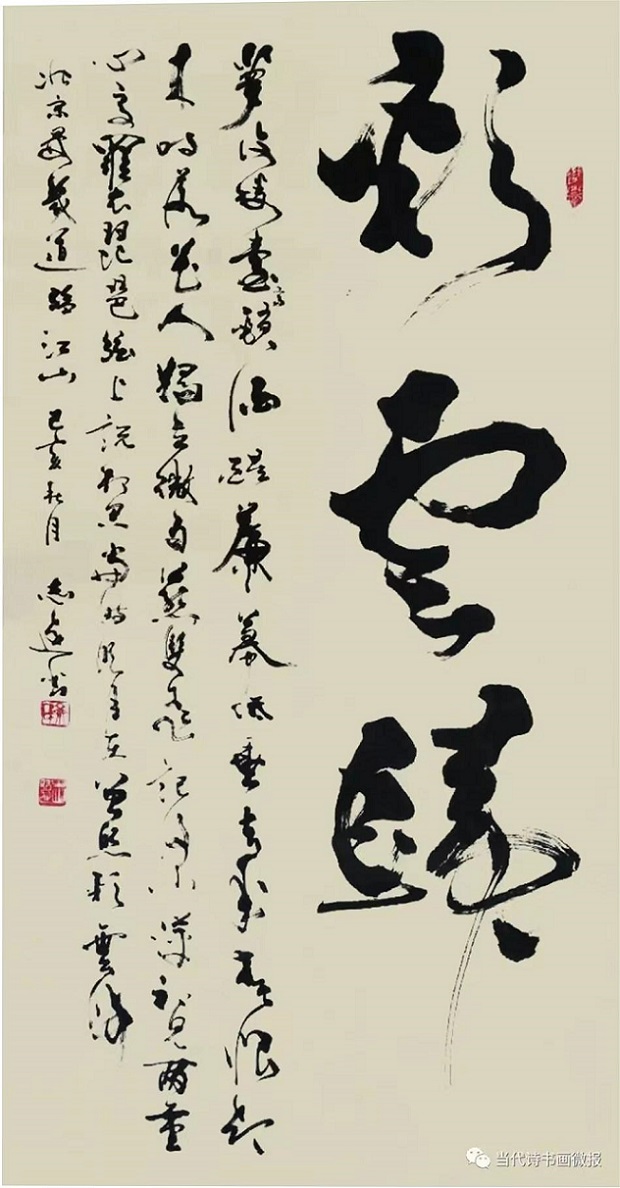 彩雲歸
夢後楼臺高鎖酒醒簾幕低垂去年春恨却
来时落花人獨立微雨燕雙飛記得小蘋初見兩重
心字羅衣琵琶弦上説相思當時明月在曾照彩雲歸
北宋晏幾道臨江仙 己亥秋月 志遠書
当代诗书画微报